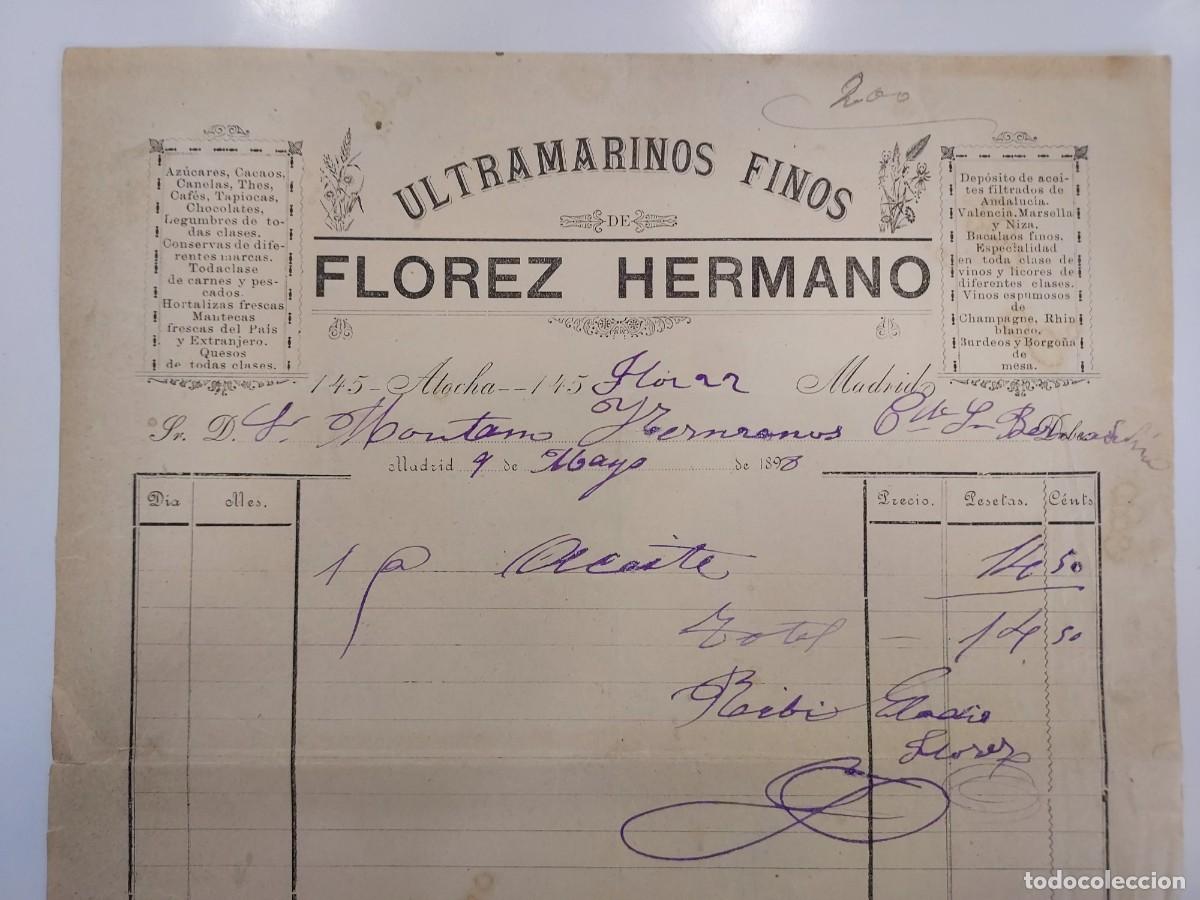 200
ULTRAMARINOS FINOS
DE
FLOREZ HERMANO
Azúcares, Cacaos,
Canelas, Thes,
Cafés, Tapiocas,
Chocolates,
Legumbres de to-
das clases.
Conservas de dife-
rentes marcas.
Toda clase
de carnes y pes-
cados.
Hortalizas frescas
Mantecas
frescas del País
y Extranjero.
Quesos
de todas clases.
Depósito de acei-
tes filtrados de
Andalucía.
Valencia, Marsella
y Niza.
Bacalaos finos.
Especialidad
en toda clase de
vinos y licores de
diferentes clases.
Vinos espumosos
de
Champagne, Rhin
blanco.
Burdeos y Borgoña
de
mesa.
145 - Atocha - 145 Madrid
Sr. D. Hermanos Debe
Madrid 9 de Mayo de 1898
Dia Mes. Precio. Pesetas. Cénts
1 @ Aceite 14 50
Total = 14 50
Recibi Eladio
Florez
todocoleccion